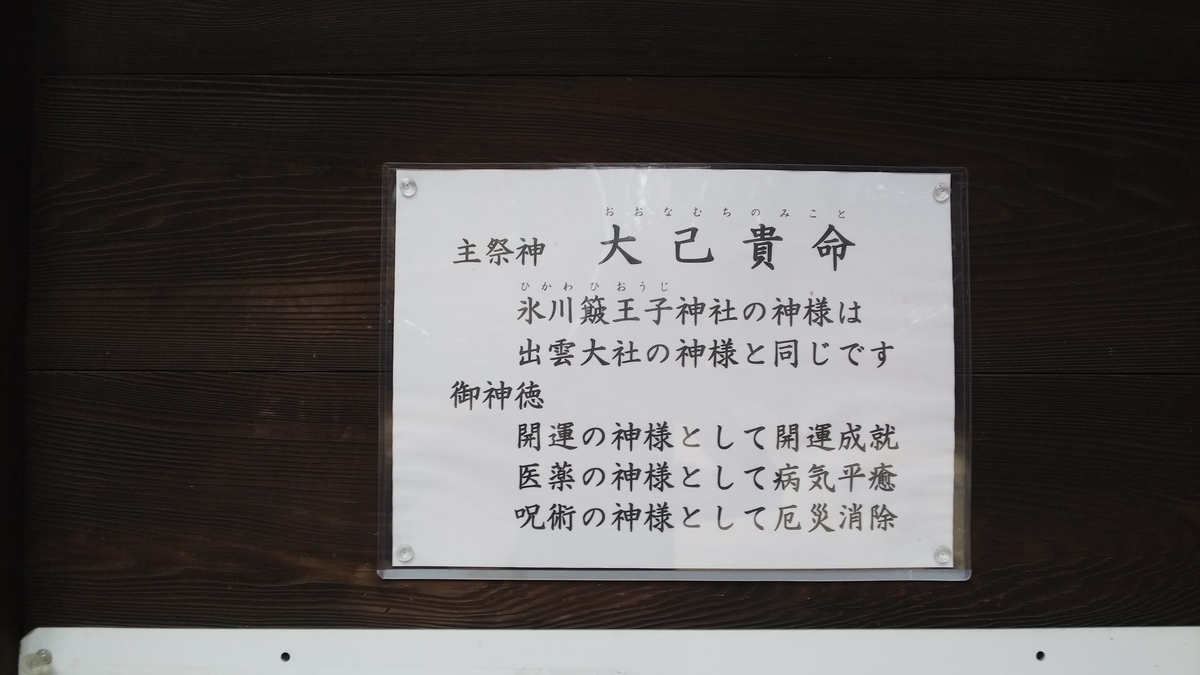 おおなむちのみこと
主祭神 大己貴命
ひかわひおうじ
氷川簸王子神社の神様は
出雲大社の神様と同じです
御神徳
開運の神様として開運成就
医薬の神様として病気平癒
呪術の神様として厄災消除